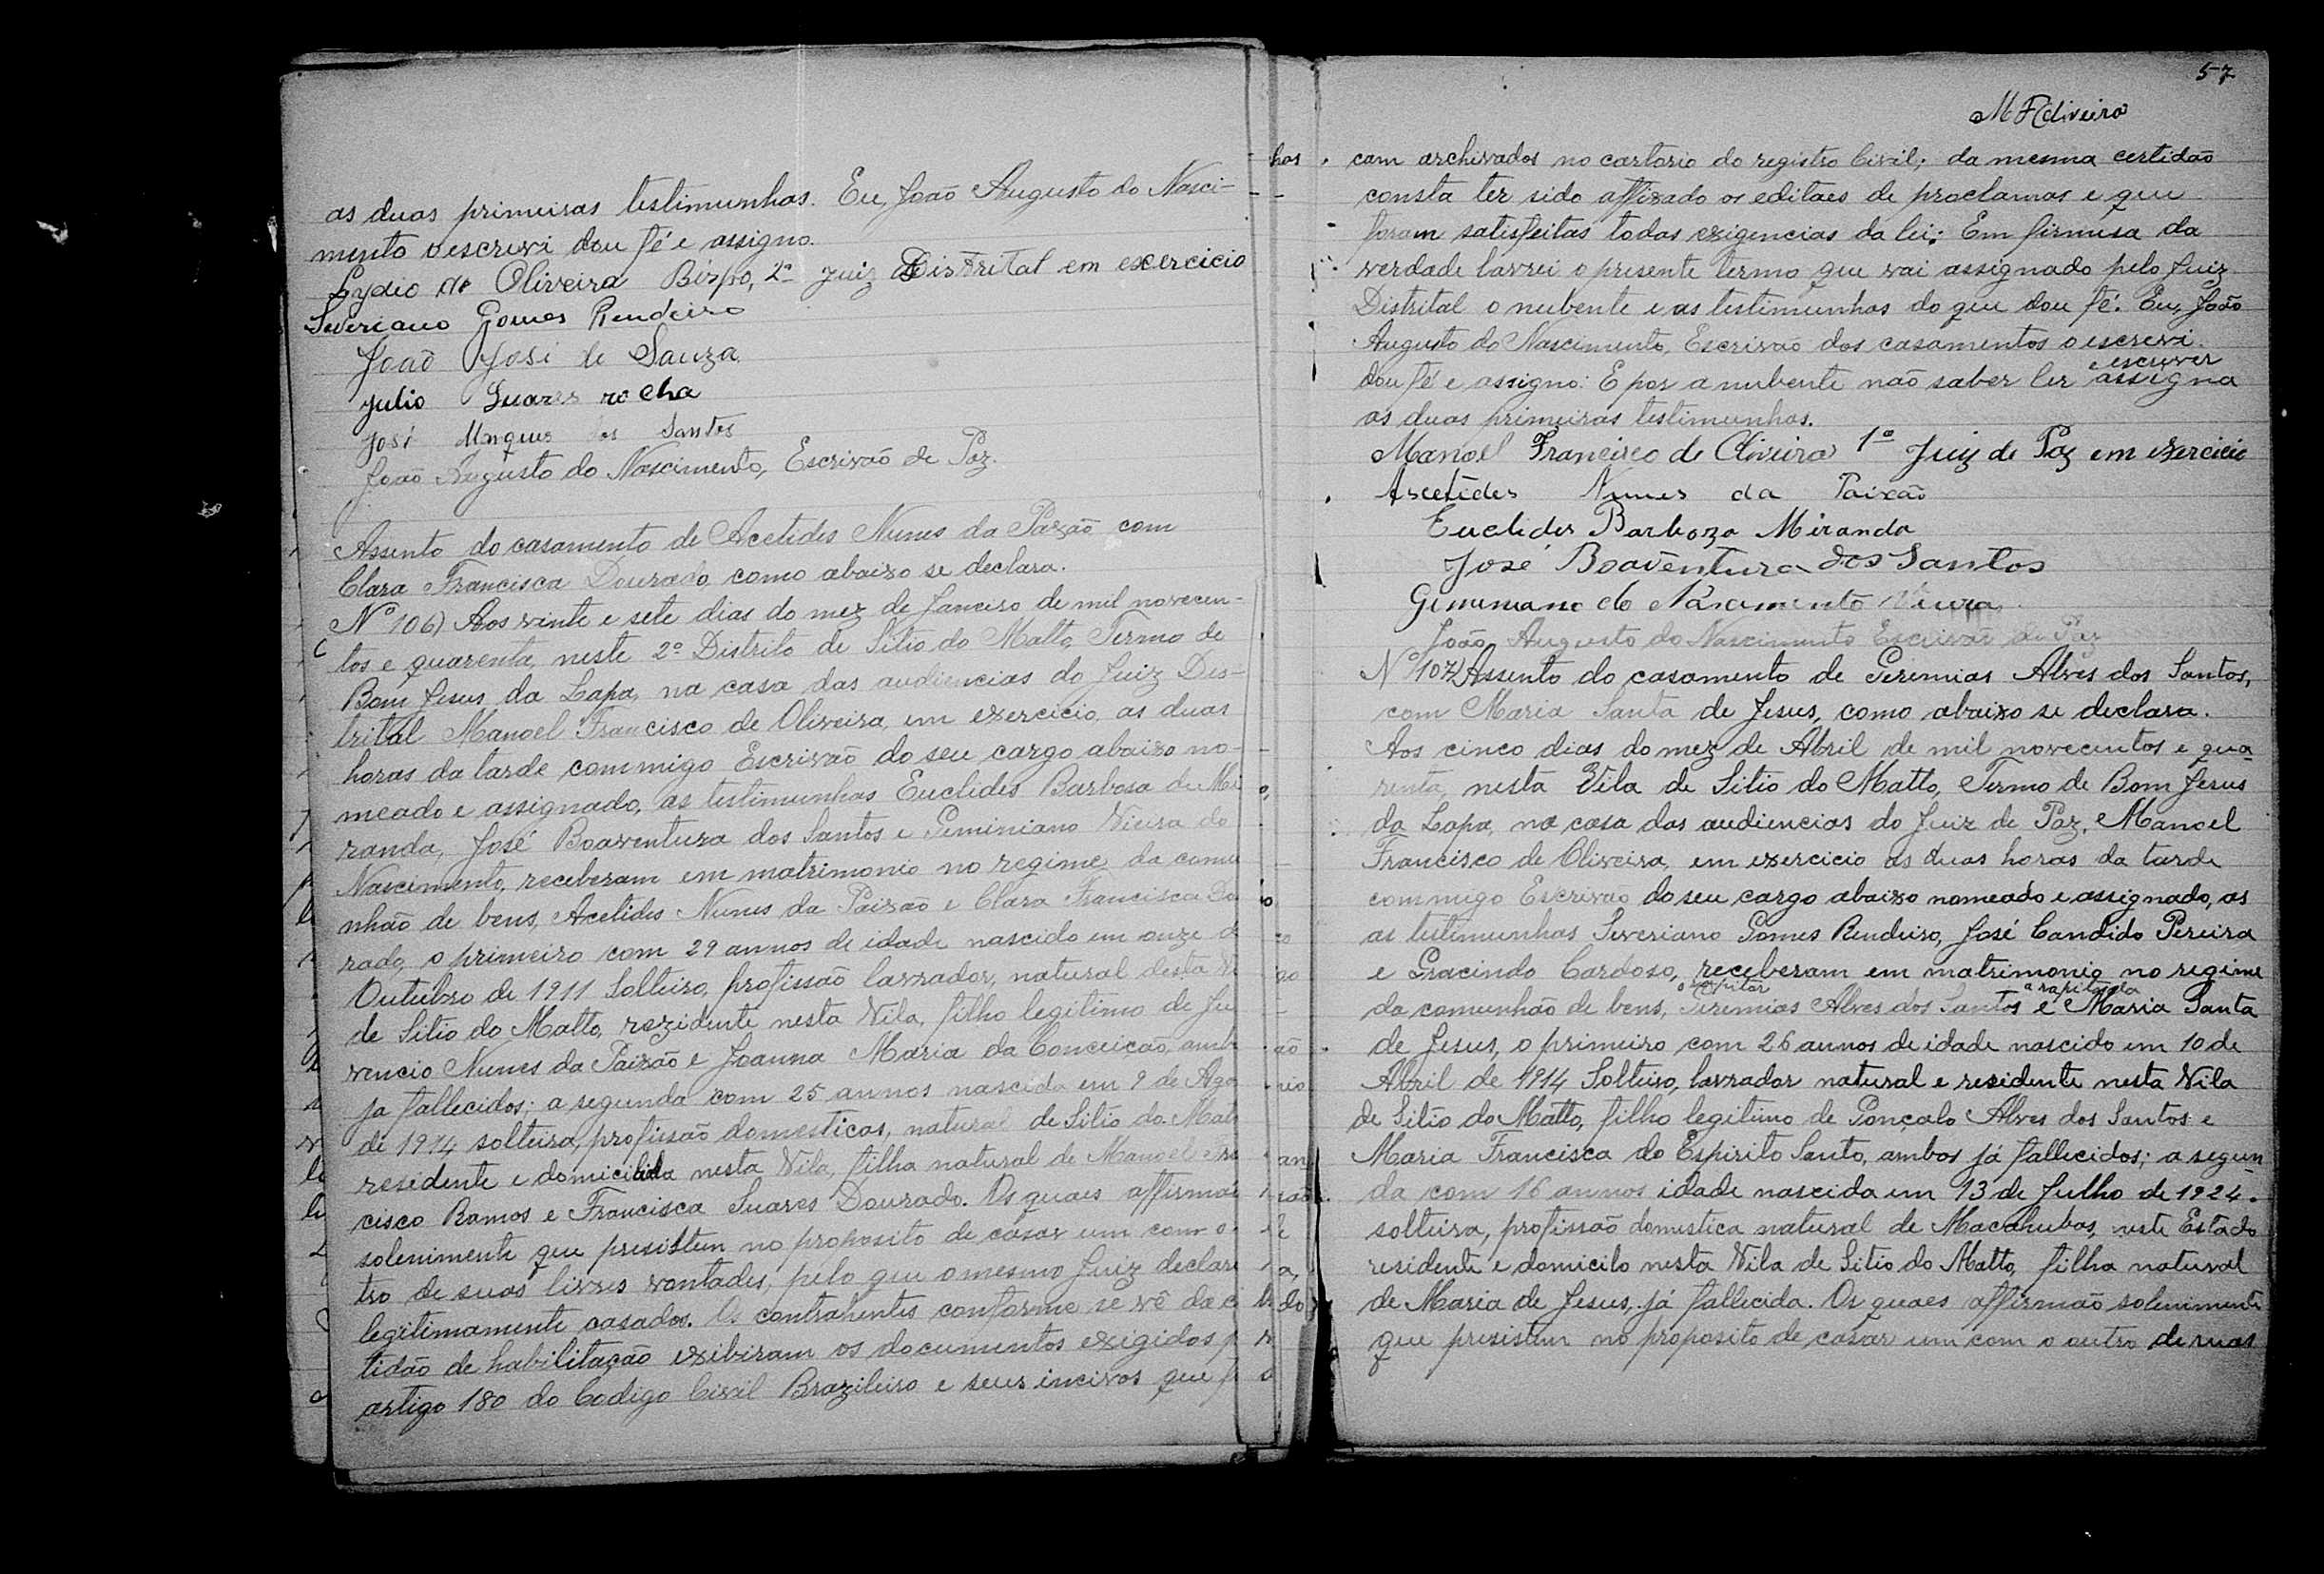 as duas primeiras testimunhas. Eu, João Augusto do Nasci-
mento o escrevi dou fé e assigno.
Lydio de Oliveira Bispo, 2º Juiz Distrital em exercicio
Severiano Gomes Rendeiro
João José de Sauza
Julio Suares rocha
José Marques dos Santos
João Augusto do Nascimento, Escrivão de Paz.
Assento do casamento de Acetides Nunes da Paixão com
Clara Francisca Dourado, como abaixo se declara.
Nº 106) Aos vinte e sete dias do mez de Janeiro de mil novecen-
tos e quarenta, neste 2º Distrito de Sitio do Matto, Termo de
Bom Jesus da Lapa, na casa das audiencias do Juiz Des-
trital Manoel Francisco de Oliveira, em exercicio, as duas
horas da tarde commigo Escrivão do seu cargo abaixo no-
meado e assignado, as testimunhas Euclides Barbosa de Mi
randa, José Boaventura dos Santos e Geminiano Vieira do
Nascimento, receberam em matrimonio no regime da comu
nhão de bens, Acetides Nunes da Paixão e Clara Francisca Do
rado, o primeiro com 29 annos de idade nascido em onze d
Outubro de 1911 Solteiro, profissão lavrador, natural desta Vi
de Sitio do Matto, rezidente nesta Vila, filho legitimo de Ju
vencio Nunes da Paixão e Joanna Maria da Conceição, amb
ja fallecidos; a segunda com 25 annos nascida em 9 de Ago
de 1914 solteira, profissão domesticas, natural de Sitio do Mat
residente e domiciliada nesta Vila, filha natural de Manoel Fra
cisco Ramos e Francisca Suares Dourado. Os quaes affirmão
solenimente que presistem no proposito de casar um com o
tro de suas livres vontades, pelo que o mesmo Juiz declara
legitimamente casados. Os contrahentes conforme se vê da c
tidão de habilitação exibiram os documentos exigidos p
artigo 180 do Codigo Civil Brazileiro e seus incivos que f
57
M F Oliveira
cam archivados no cartorio do registro Civil; da mesma certidão
consta ter sido affixado os editaes de proclamas e que
foram satisfeitas todas exigencias da lei; Em firmesa da
verdade lavrei o presente termo que vai assignado pelo Juiz
Distrital o nubente e as testimunhas do que dou fé. Eu, João
Augusto do Nascimento, Escrivão dos casamentos o escrevi.
escrever
dou fé e assigno: E por a nubente não saber ler e assigna
as duas primeiras testimunhas.
Manoel Francisco de Oliveira 1º Juiz de Paz em exercicio
Ascetides Nunes da Paixão
Euclides Barboza Miranda
José Boaventura dos Santos
Geminiano do Nascimento Vieira
João Augusto do Nascimento Escrivão de Paz
Nº 107) Assento do casamento de Geremias Alves dos Santos,
com Maria Santa de Jesus, como abaixo se declara.
Aos cinco dias do mez de Abril de mil novecentos e qua
renta, nesta Vila de Sitio do Matto, Termo de Bom Jesus
da Lapa, na casa das audiencias do Juiz de Paz, Manoel
Francisco de Oliveira, em exercicio as duas horas da tarde
commigo Escrivão do seu cargo abaixo nomeado e assignado, as
as testimunhas Severiano Gomes Rendeiro, José Candido Pereira
e Gracindo Cardoso, receberam em matrimonio no regime
da comunhão de bens, Geremias Alves dos Santos e Maria Santa
de Jesus, o primeiro com 26 annos de idade nascido em 10 de
Abril de 1914 Solteiro, lavrador natural e residente nesta Vila
de Sitio do Matto, filho legitimo de Gonçalo Alves dos Santos e
Maria Francisca do Espirito Santo, ambos já fallecidos; a segun
da com 16 annos idade nascida em 13 de Julho de 1924.
solteira, profissão domestica natural de Macahubas, neste Estado
residente e domicilo nesta Vila de Sitio do Matto, filha natural
de Maria de Jesus, já fallecida. Os quaes affirmão solenimente
que presistem no proposito de casar um com o outro de suas